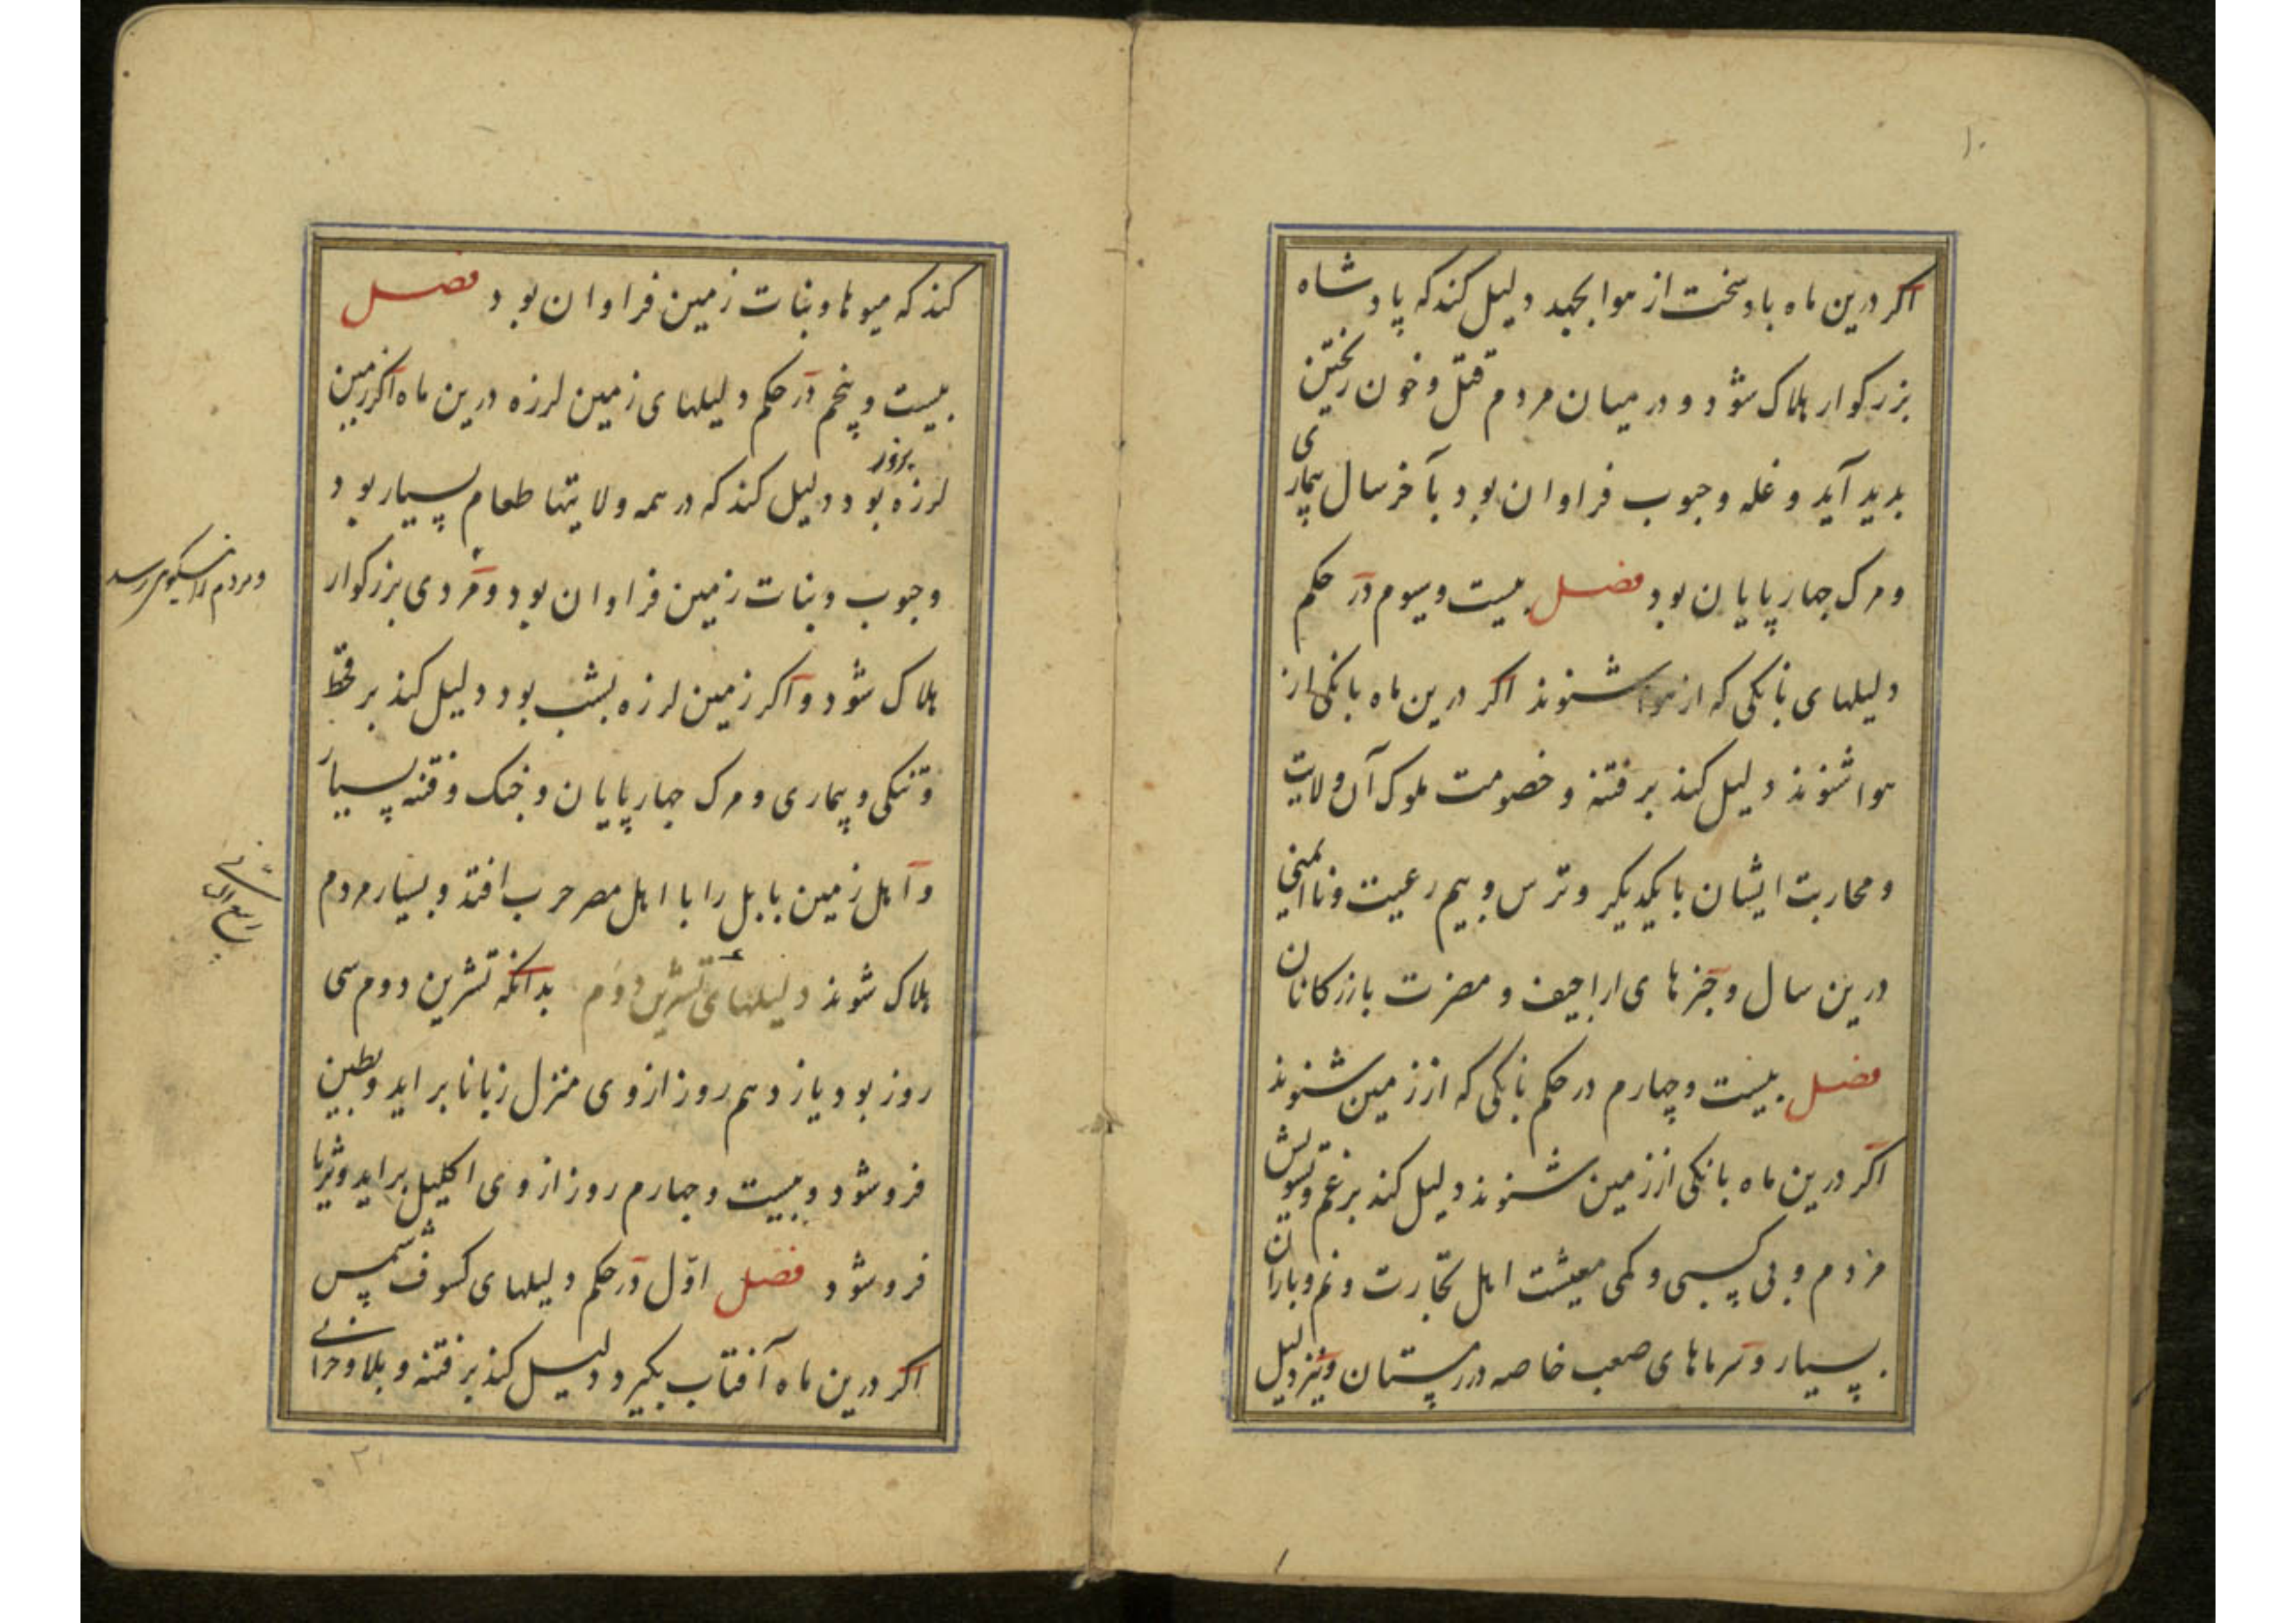 ۱۰
اکر درین ماه باد سخت از هوا بجهد دلیل کند که پادشاه
بزرکوار هلاک شود و در میان مردم قتل و خون ریختن
بدید آید و غله و حبوب فراوان بود بآخر سال بیماری
و مرک جهارپایان بود فصل بیست و سیوم در حکم
دلیلهای بانکی که از هوا شنوند اکر درین ماه بانکی از
هوا شنوند دلیل کند بر فتنه و خصومت ملوک آن ولایت
و محاربت ایشان با یکدیکر و ترس و بیم رعیت و ناایمنی
درین سال و خبرهای اراجیف و مضرت بازرکانان
فصل بیست و چهارم در حکم بانکی که از زمین شنوند
اکر درین ماه بانکی از زمین شنوند دلیل کند بر غم و تشویش
مردم و بی کسبی و کمی معیشت اهل تجارت و نم و باران
بسیار و سرماهای صعب خاصه در زمستان و نیز دلیل
کند که میوها و نبات زمین فراوان بود فصل
بیست و پنجم در حکم دلیلهای زمین لرزه درین ماه اکر زمین
لرزه بروز بود دلیل کند که در همه ولایتها طعام بسیار بود
و حبوب و نبات زمین فراوان بود و مردی بزرکوار
هلاک شود و اکر زمین لرزه بشب بود دلیل کند بر قحط
و تنکی و بیماری و مرک جهارپایان و جنک و فتنه بسیار
و اهل زمین بابل را با اهل مصر حرب افتد و بسیار مردم
هلاک شوند دلیلهای تشرین دوم بدانکه تشرین دوم سی
روز بود یازدهم روز از وی منزل زبانا براید و بطین
فرو شود و بیست و جهارم روز از وی اکلیل براید و ثریا
فرو شود فصل اول در حکم دلیلهای کسوف شمس پس
اکر درین ماه آفتاب بکیرد دلیل کند بر فتنه و بلا و خرابی
و مردم را نیکویی رسد